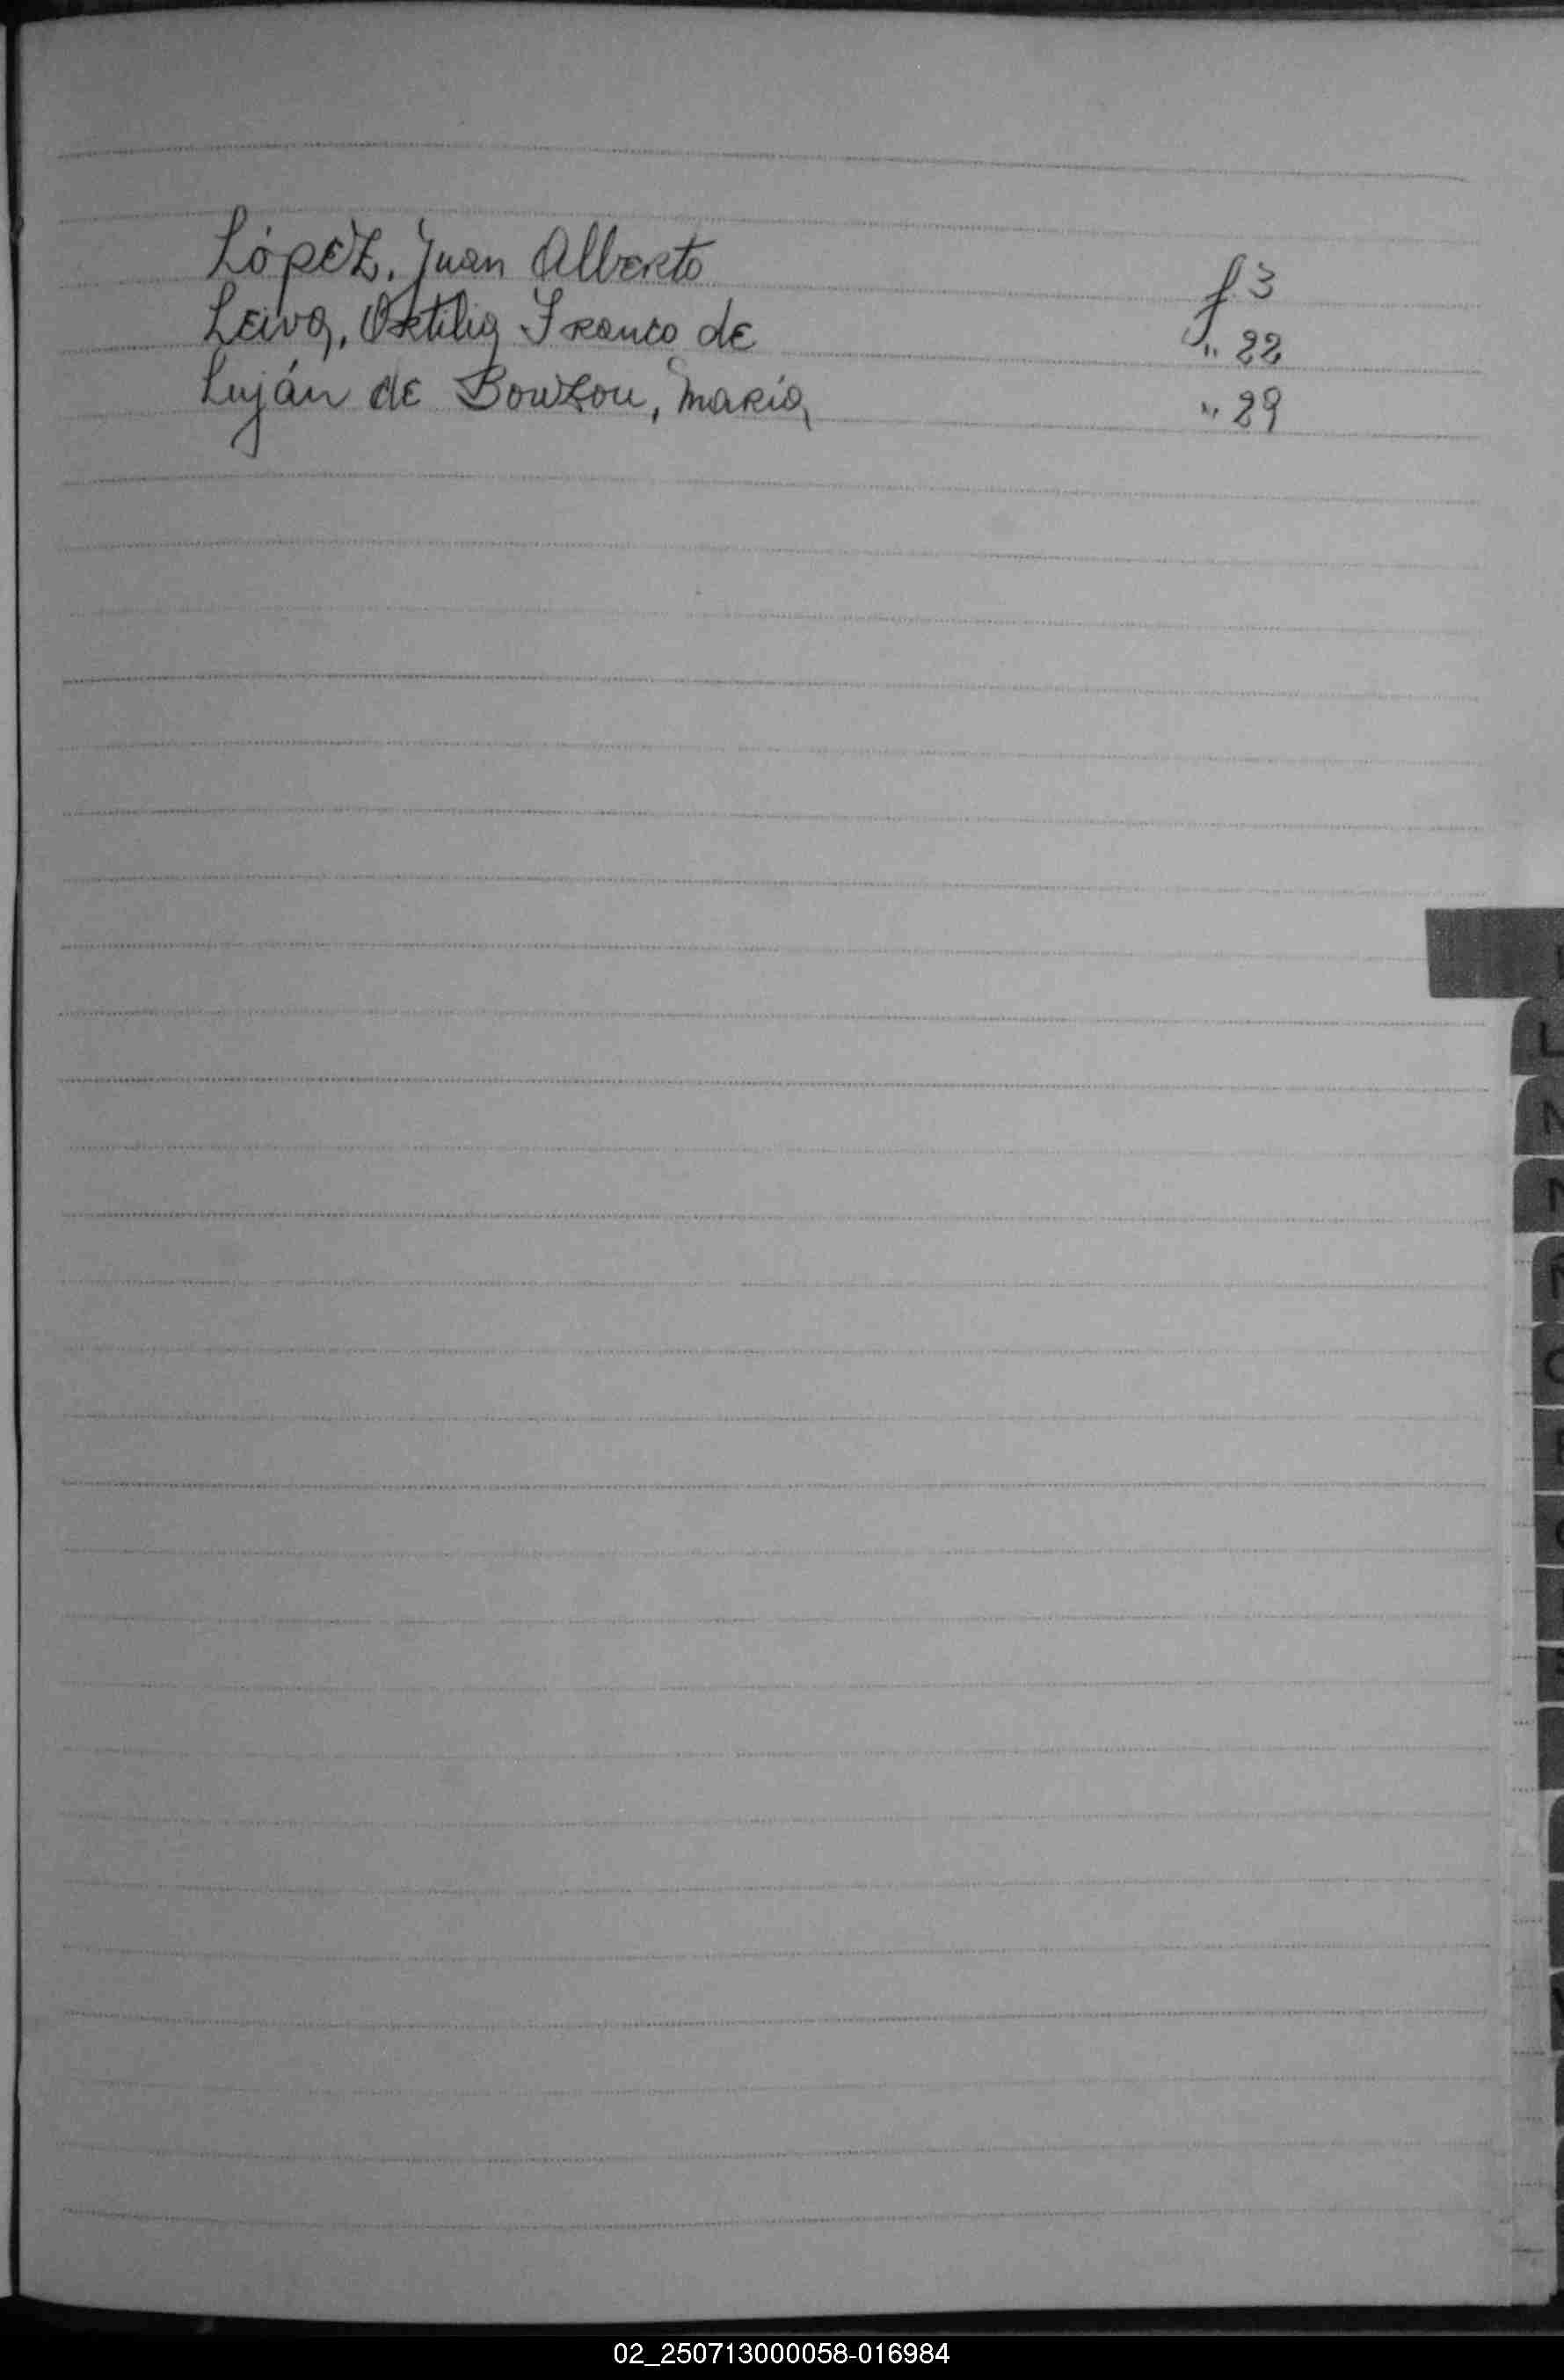 López, Juan Alberto f. 3
Leiva, Ortilia Franco de " 22
Luján de Bowzou, María " 29
L
N
02_250713000058-016984